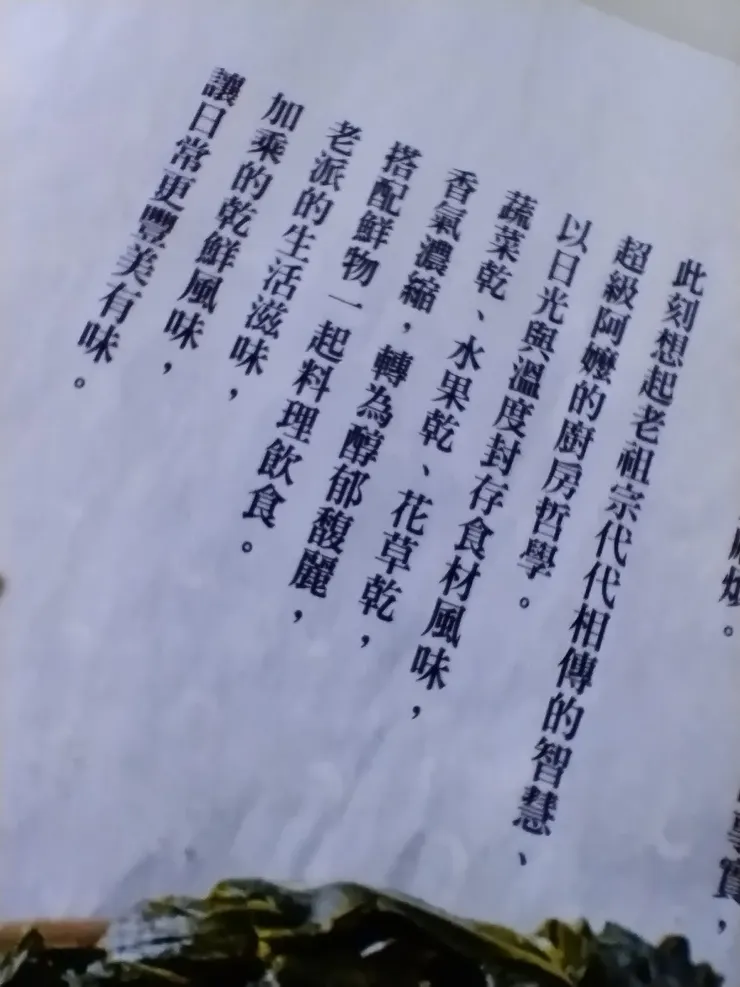 此刻想起老祖宗代代相傳的智慧、
超級阿嬤的廚房哲學。
以日光與溫度封存食材風味，
蔬菜乾、水果乾、花草乾，
香氣濃縮，轉為醇郁馥麗，
搭配鮮物一起料理飲食。
老派的生活滋味，
加乘的乾鮮風味，
讓日常更豐美有味。